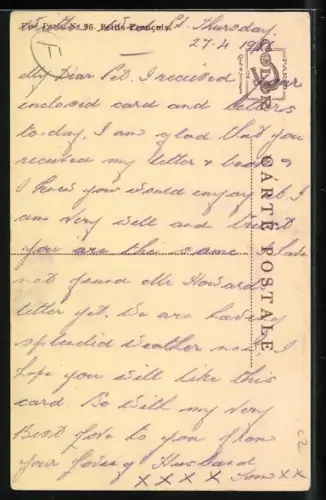 Thursday.
27-4-19
My Dear Pet. I recieved your
enclosed card and letters
to-day. I am glad that you
received my letter & book &
I knew you would enjoy it. I
am very well and trust
you are the same. I have
not found Mr Howard
letter yet. We are having
splendid weather now, I
hope you will like this
card. So with my very
Best love to you from
your loving Husband
XXXX XX
CARTE POSTALE